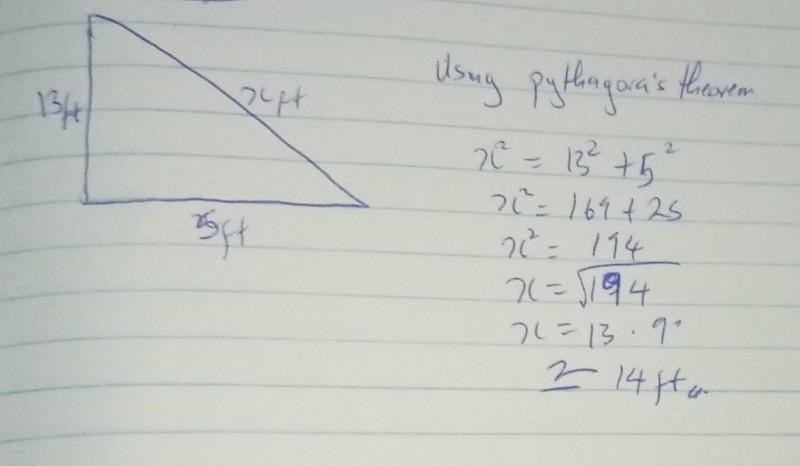 13ft
xft
5ft
Using pythagora's theorem
x² = 13² + 5²
x² = 169 + 25
x² = 194
x = √194
x = 13.9
≈ 14ft